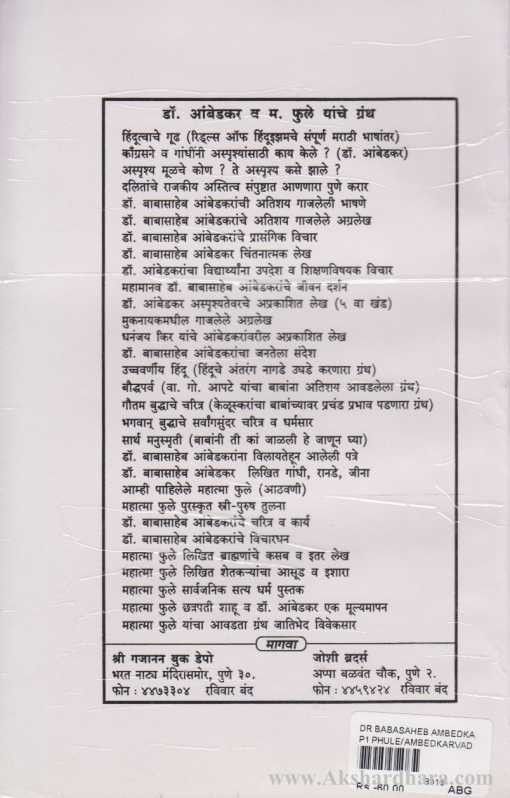 डॉ. आंबेडकर व म. फुले यांचे ग्रंथ
हिंदूत्वाचे गूढ (रिडल्स ऑफ हिंदूइझमचे संपूर्ण मराठी भाषांतर)
काँग्रसने व गांधींनी अस्पृश्यांसाठी काय केले ? (डॉ. आंबेडकर)
अस्पृश्य मूळचे कोण ? ते अस्पृश्य कसे झाले ?
दलितांचे राजकीय अस्तित्व संपुष्टात आणणारा पुणे करार
डॉ. बाबासाहेब आंबेडकरांची अतिशय गाजलेली भाषणे
डॉ. बाबासाहेब आंबेडकरांचे अतिशय गाजलेले अग्रलेख
डॉ. बाबासाहेब आंबेडकरांचे प्रासंगिक विचार
डॉ. बाबासाहेब आंबेडकर चिंतनात्मक लेख
डॉ. आंबेडकरांचा विद्यार्थ्यांना उपदेश व शिक्षणविषयक विचार
महामानव डॉ. बाबासाहेब आंबेडकरांचे जीवन दर्शन
डॉ. आंबेडकर अस्पृश्यतेवरचे अप्रकाशित लेख (५ वा खंड)
मुकनायकमधील गाजलेले अग्रलेख
धनंजय किर यांचे आंबेडकरांवरील अप्रकाशित लेख
डॉ. बाबासाहेब आंबेडकरांचा जनतेला संदेश
उच्चवर्णीय हिंदू (हिंदूचे अंतरंग नागडे उघडे करणारा ग्रंथ)
बौद्धपर्व (वा. गो. आपटे यांचा बाबांना अतिशय आवडलेला ग्रंथ)
गौतम बुद्धाचे चरित्र (केळूस्करांचा बाबांच्यावर प्रचंड प्रभाव पडणारा ग्रंथ)
भगवान् बुद्धाचे सर्वांगसुंदर चरित्र व धर्मसार
सार्थ मनुस्मृती (बाबांनी ती कां जाळली हे जाणून घ्या)
डॉ. बाबासाहेब आंबेडकरांना विलायतेहून आलेली पत्रे
डॉ. बाबासाहेब आंबेडकर लिखित गांधी, रानडे, जीना
आम्ही पाहिलेले महात्मा फुले (आठवणी)
महात्मा फुले पुरस्कृत स्त्री-पुरुष तुलना
डॉ. बाबासाहेब आंबेडकरांचे चरित्र व कार्य
डॉ. बाबासाहेब आंबेडकरांचे विचारधन
महात्मा फुले लिखित ब्राह्मणांचे कसब व इतर लेख
महात्मा फुले लिखित शेतकऱ्यांचा आसूड व इशारा
महात्मा फुले सार्वजनिक सत्य धर्म पुस्तक
महात्मा फुले छत्रपती शाहू व डॉ. आंबेडकर एक मूल्यमापन
महात्मा फुले यांचा आवडता ग्रंथ जातिभेद विवेकसार
मागवा
श्री गजानन बुक डेपो
भरत नाट्य मंदिरासमोर, पुणे ३०.
फोन : ४४७३३०४ रविवार बंद
जोशी ब्रदर्स
अप्पा बळवंत चौक, पुणे २.
फोन : ४४५९४२४ रविवार बंद
DR BABASAHEB AMBEDKA
P1 PHULE/AMBEDKARVAD
RS -60.00 ABG
www.Akshardhara.com